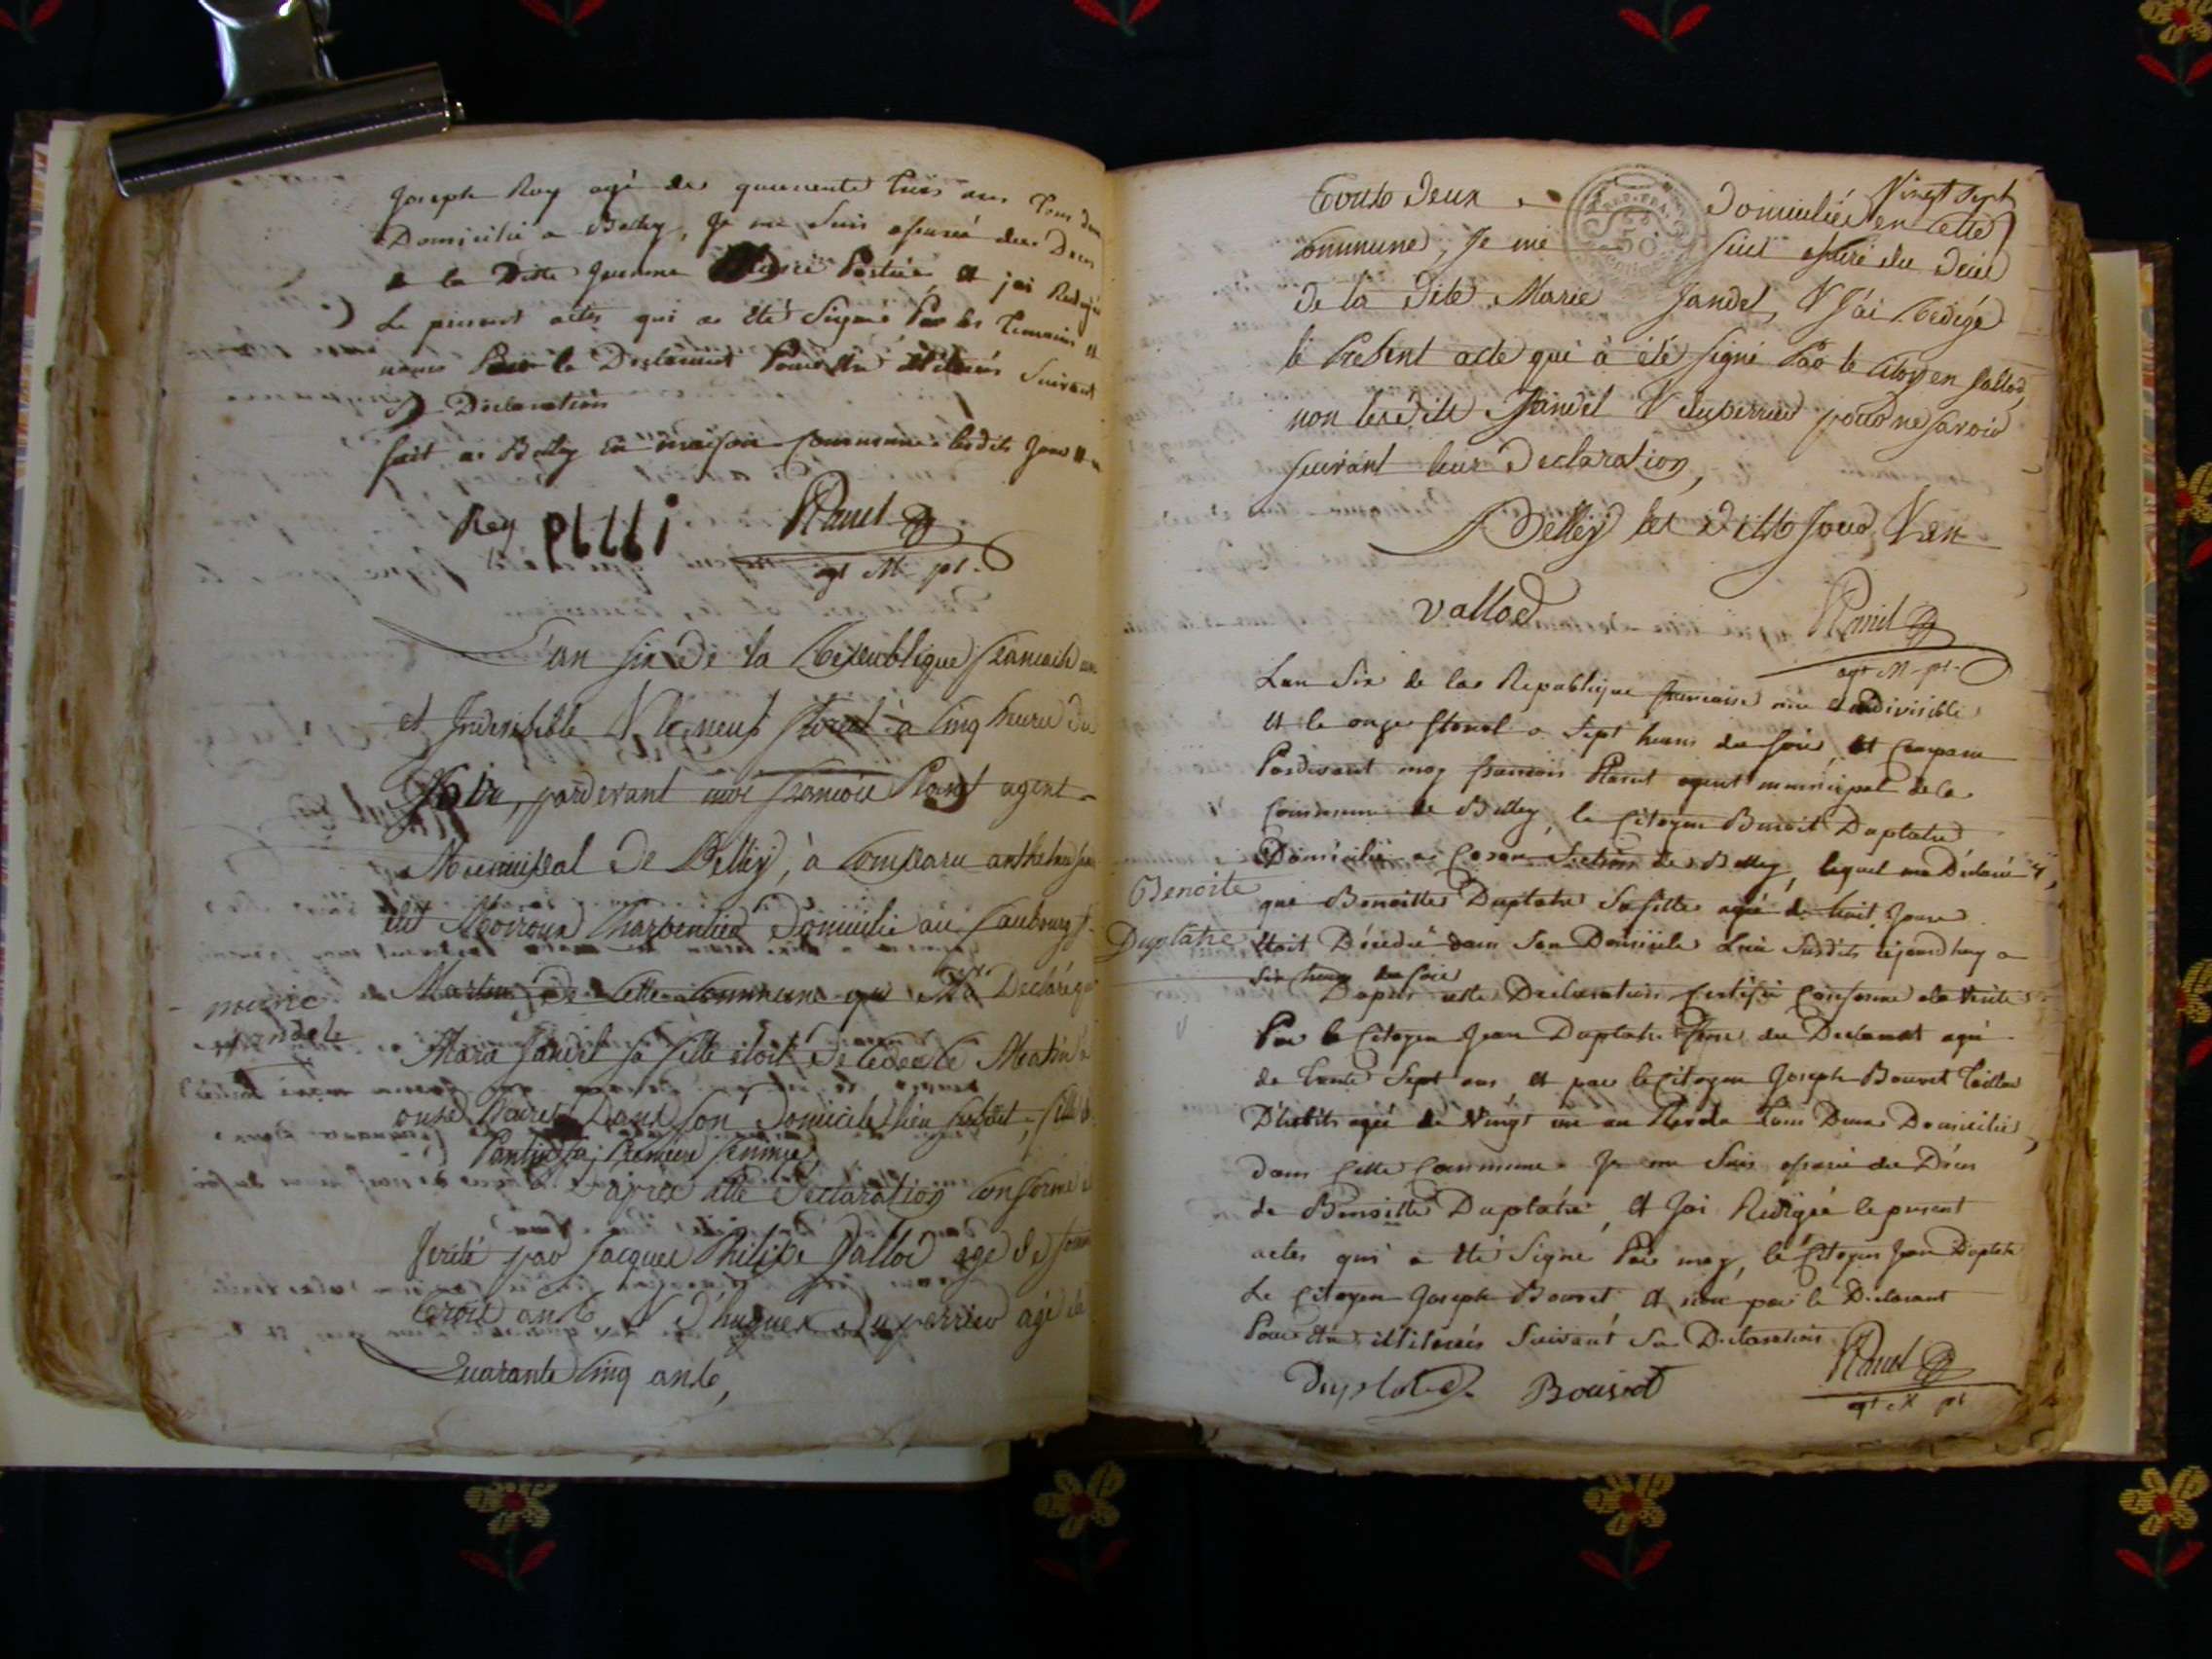 Joseph Rey agé de quarente trois ans tous deux
Domicilié a Belley, Je me suis assuré du Deces
de la Ditte Jeanne et jai Redigé
Le present actes qui a été Signé Par les Temoins et
non Par le Declarant Pour être illiterés Suivant
sa Declaration
fait a Belley En maison Commune lesdits Jour et an
Rey
agt M. pl.
L'an six de la Republique francaise une
et Indivisible & le neuf floreal à cinq heure du
Soir, pardevant moi francois agent
Municipal de Belley, à Comparu
dit Charpentier Domicilié au faubourg St
Martin de Cette Commune qui M'a Declaré que
Marie
Marie Jandel sa fille etoit decedée le Matin à
onze heures Dans son domicile lieu susdit, fille de
sa Premiere femme,
D'après cette declaration conforme à
verité par Jacques Philipe Vallod agé de
trois ans & d'hugues Duperrier agé de
Quarante Cinq ans,
Vingt Sept
Touts deux Domiciliés en Cette
Commune, Je me suis assuré du deces
de la dite Marie Jandel, & J'ai redigé
le Present acte qui à été signé Par le Citoyen Vallod,
non lesdits Jandel & duperrier pour ne savoir
suivant leur Declaration,
Belley les Dits Jour & an
Vallod
agt M. pl.
Lan Six de la Republique francaise une et indivisible
et le onze floreal a Sept heures du soir, est Comparu
Pardevant moy francois agent municipal de la
Commune de Belley, le Citoyen Benoit Duplatre
Domicilié a Section de Belley, lequel ma Déclaré
Benoite
Duplatre
que Benoitte Duplatre Sa fille agée de huit Jours
Etait Décedée dans Son Domicile Lieu Susdit aujourdhuy a
Six heures du soir
Dapres cette Declaration Certifié Conforme a la verité
Par le Citoyen Jean Duplatre frere du Declarant agé
de trente Sept ans et par le Citoyen Joseph Bouvet Tailleur
D'habits agé de Vingt un an Tous Deux Domiciliés
dans Cette Commune Je me Suis assuré du Déces
de Benoitte Duplatre, et Jai Redigée le present
actes qui a été Signé Par moy, le Citoyen Jean Duplatre
Le Citoyen Joseph Bouvet et non par le Declarant
Pour être illiterés Suivant Sa Declaration
Duplatre Bouvet
agt M. pl.